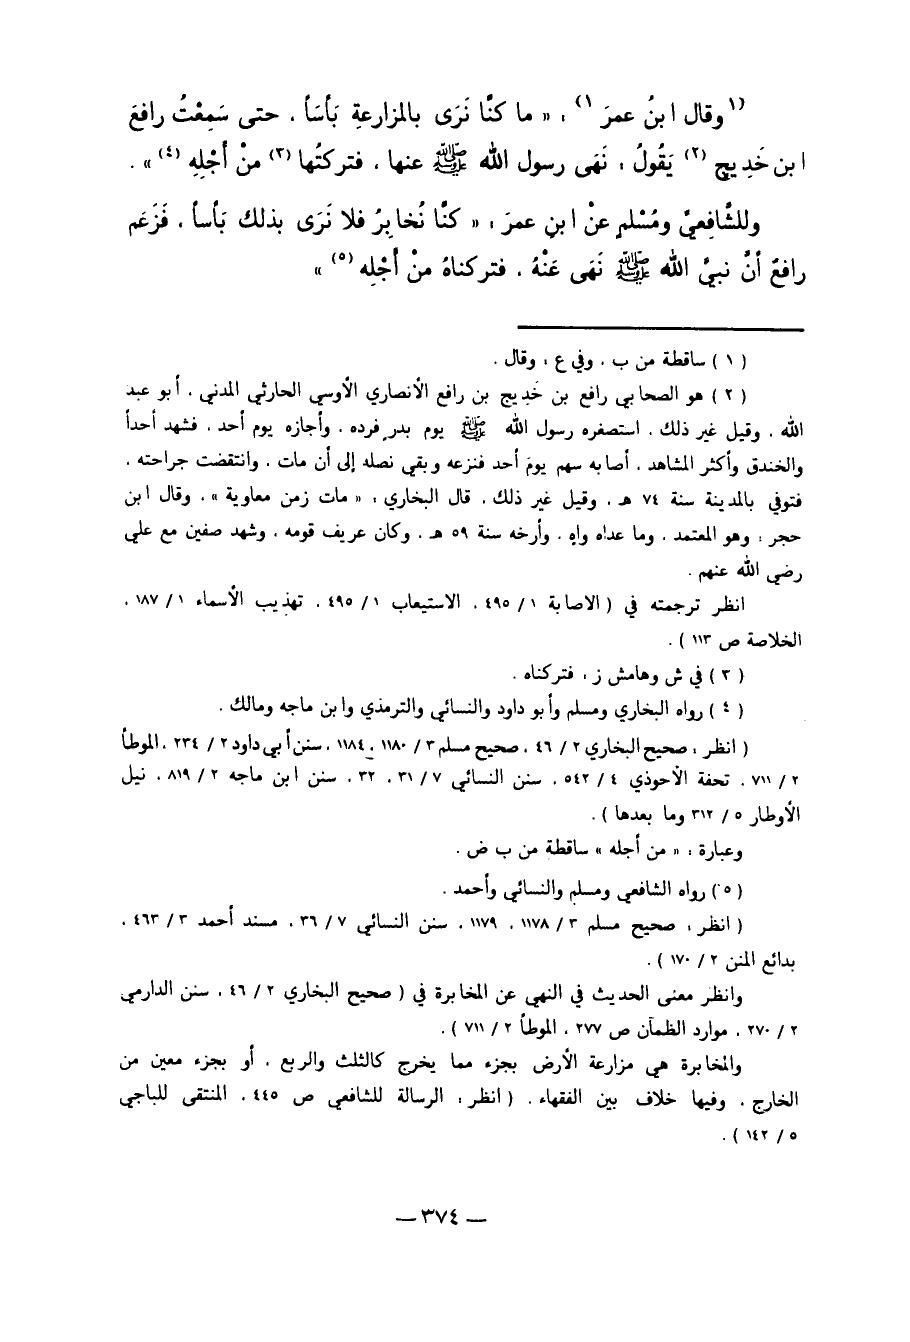 (١ وقال ابنُ عمرَ ١) : « ما كنَّا نَرَى بالمزارعةِ بَأسَاً ، حتى سَمِعْتُ رافعَ
ابن خَدِيجٍ (٢) يَقُولُ : نَهَى رسول الله ﷺ عنها ، فتركتُها (٣) منْ أَجْلِهِ (٤) » .
وللشَّافِعيِّ ومُسْلمٍ عنْ ابنِ عمرَ : « كنَّا نُخابرُ فلا نَرَى بذلك بَأساً ، فَزَعَم
رافعٌ أنَّ نبيَّ الله ﷺ نَهَى عَنْهُ ، فتركناهُ منْ أَجْلِه (٥) »
( ١ ) ساقطة من ب . وفي ع : وقال .
( ٢ ) هو الصحابي رافع بن خَدِيج بن رافع الأنصاري الأوسي الحارثي المدني ، أبو عبد
الله ، وقيل غير ذلك . استصغره رسول الله ﷺ يوم بدر فرده ، وأجازه يوم أحد ، فشهد أحداً
والخندق وأكثر المشاهد ، أصابه سهم يومَ أحد فنزعه وبقي نصله إلى أن مات ، وانتقضت جراحته ،
فتوفي بالمدينة سنة ٧٤ هـ ، وقيل غير ذلك ، قال البخاري : « مات زمن معاوية » ، وقال ابن
حجر : وهو المعتمد ، وما عداه واهٍ . وأرخه سنة ٥٩ هـ . وكان عريف قومه ، وشهد صفين مع علي
رضي الله عنهم .
انظر ترجمته في ( الاصابة ١ / ٤٩٥ ، الاستيعاب ١ / ٤٩٥ ، تهذيب الأسماء ١ / ١٨٧ ،
الخلاصة ص ١١٣ ) .
( ٣ ) في ش وهامش ز : فتركناه .
( ٤ ) رواه البخاري ومسلم وأبو داود والنسائي والترمذي وابن ماجه ومالك .
( انظر : صحيح البخاري ٢ / ٤٦ ، صحيح مسلم ٣ / ١١٨٠ ، ١١٨٤ ، سنن أبي داود ٢ / ٢٣٤ ، الموطأ
٢ / ٧١١ ، تحفة الأحوذي ٤ / ٥٤٢ ، سنن النسائي ٧ / ٣١ ، ٣٢ ، سنن ابن ماجه ٢ / ٨١٩ ، نيل
الأوطار ٥ / ٣١٢ وما بعدها ) .
وعبارة : « من أجله » ساقطة من ب ض .
( ٥ ) رواه الشافعي ومسلم والنسائي وأحمد .
( انظر : صحيح مسلم ٣ / ١١٧٨ ، ١١٧٩ ، سنن النسائي ٧ / ٣٦ ، مسند أحمد ٣ / ٤٦٣ ،
بدائع المنن ٢ / ١٧٠ ) .
وانظر معنى الحديث في النهي عن المخابرة في ( صحيح البخاري ٢ / ٤٦ ، سنن الدارمي
٢ / ٢٧٠ ، موارد الظمآن ص ٢٧٧ ، الموطأ ٢ / ٧١١ ) .
والمخابرة هي مزارعة الأرض بجزء مما يخرج كالثلث والربع ، أو بجزء معين من
الخارج ، وفيها خلاف بين الفقهاء . ( انظر : الرسالة للشافعي ص ٤٤٥ ، المنتقى للباجي
٥ / ١٤٢ ) .
— ٣٧٤ —